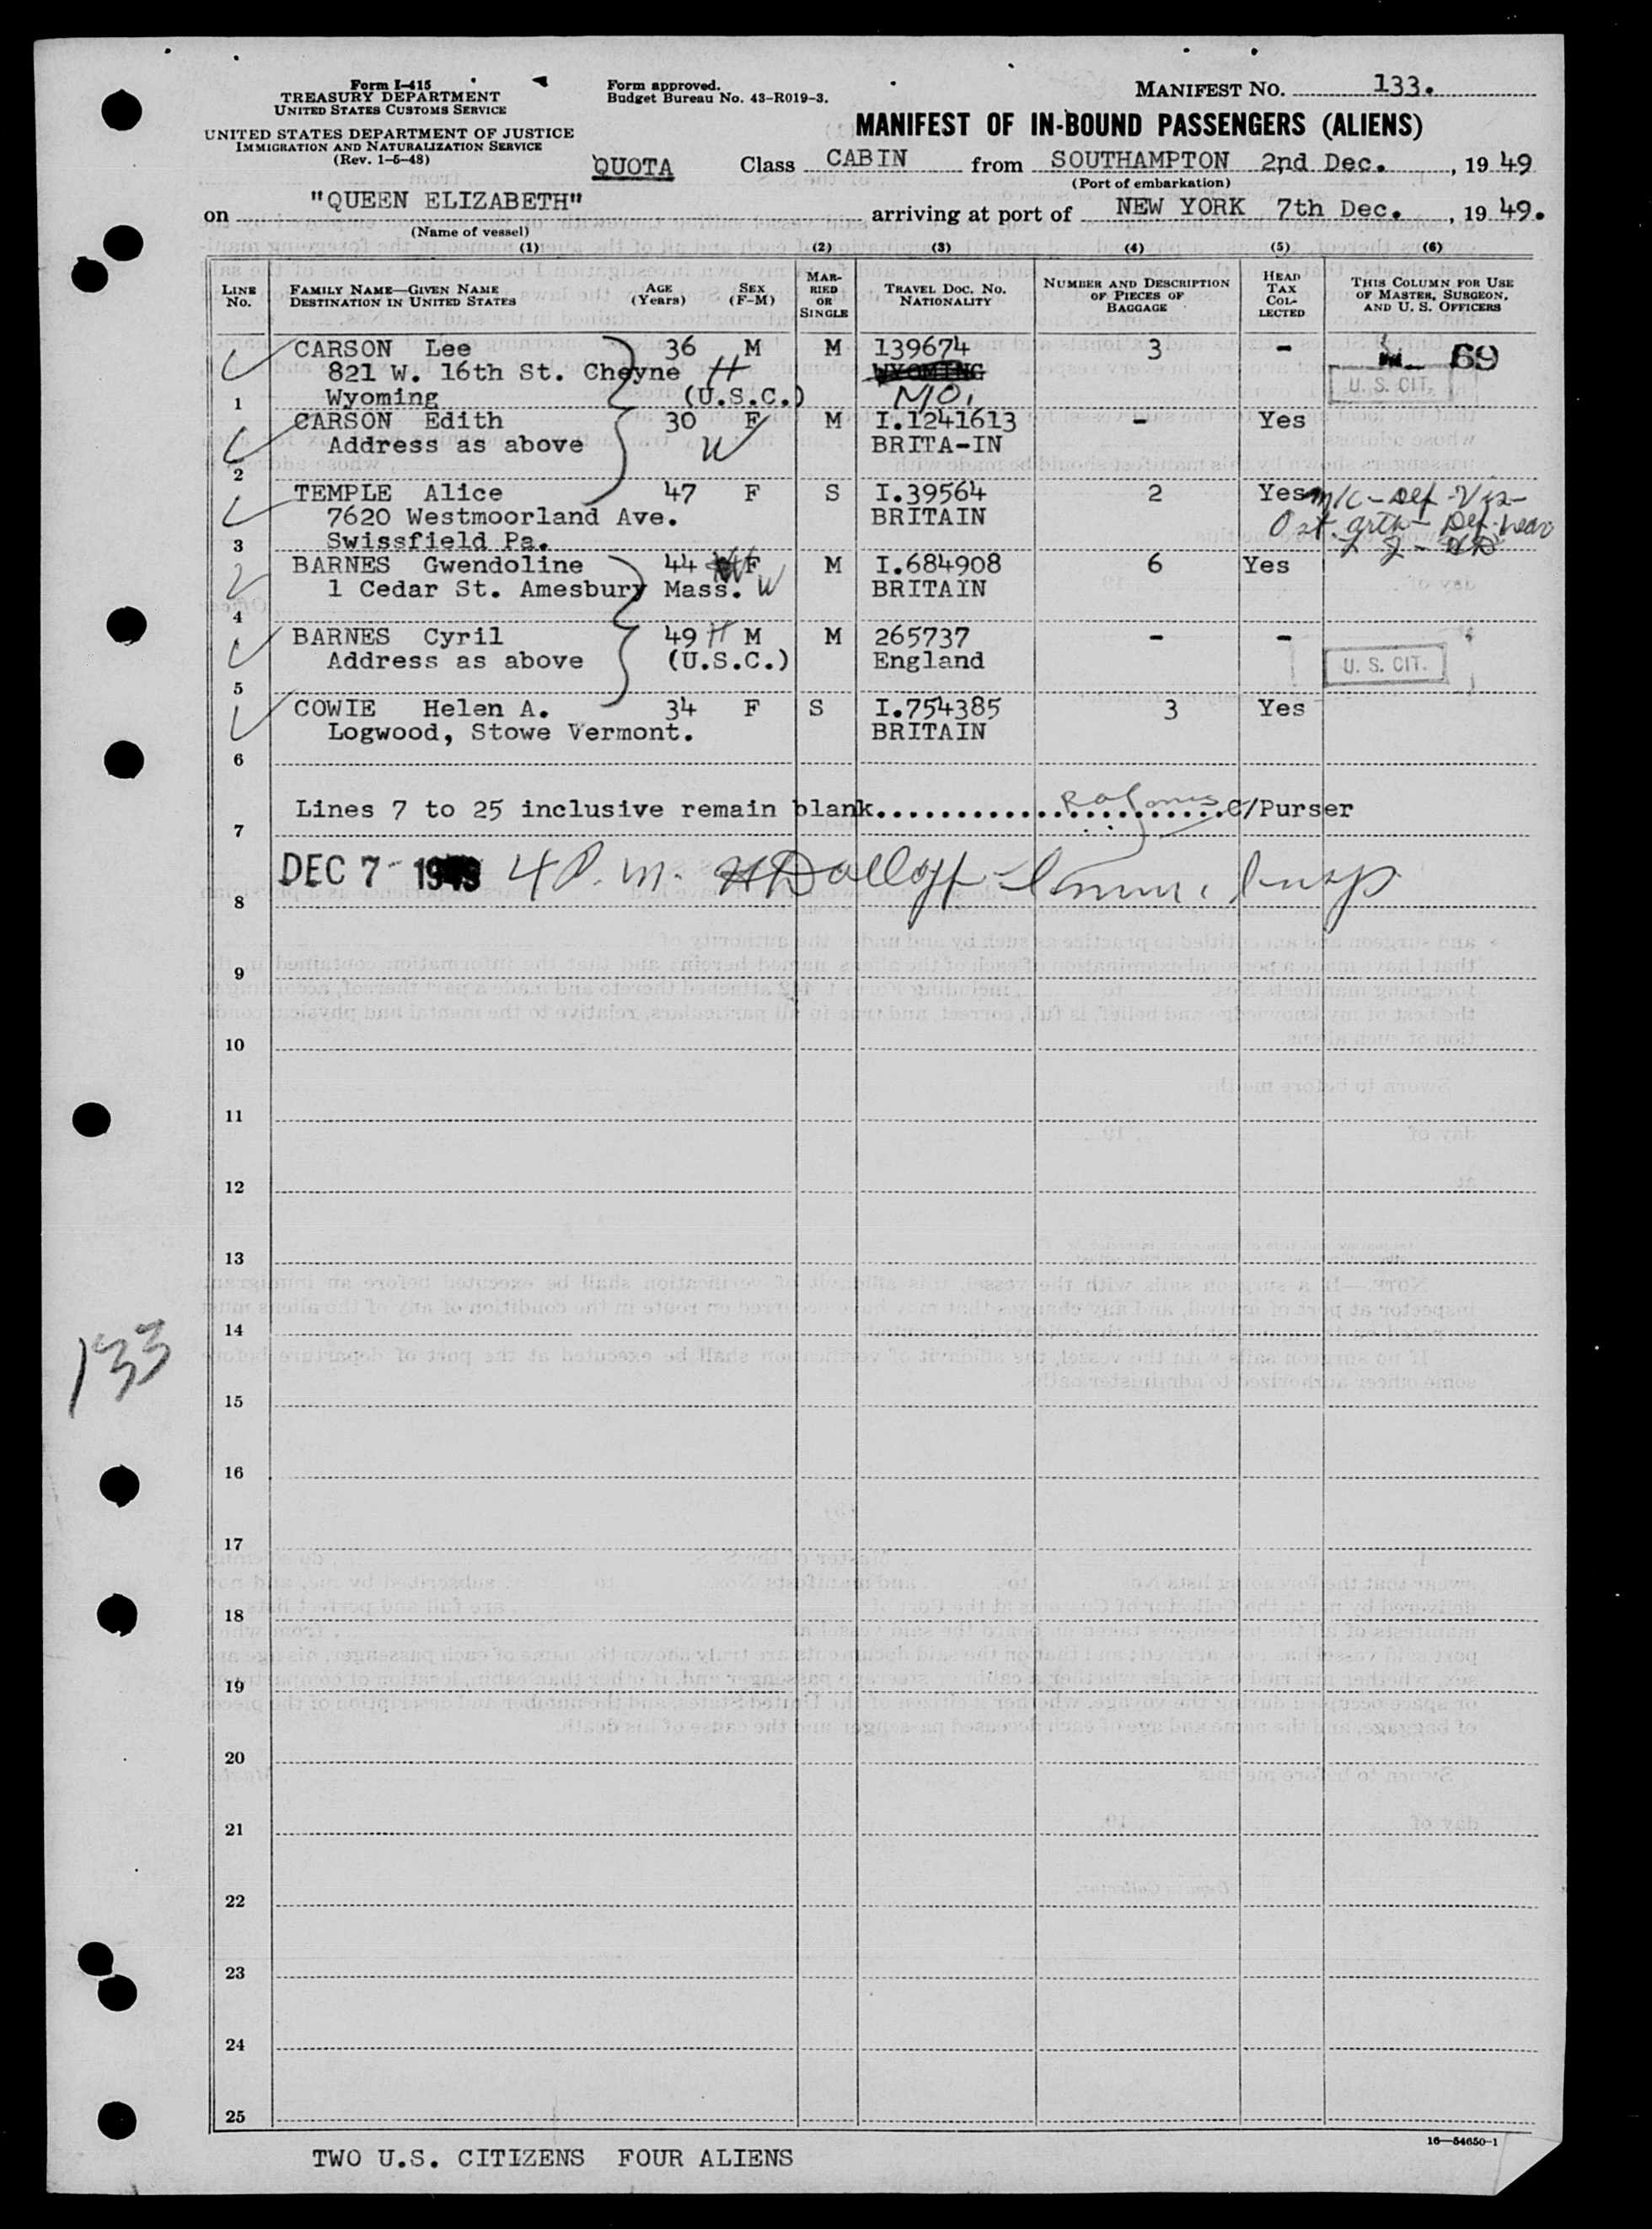 Form I-415
TREASURY DEPARTMENT
UNITED STATES CUSTOMS SERVICE
UNITED STATES DEPARTMENT OF JUSTICE
IMMIGRATION AND NATURALIZATION SERVICE
(Rev. 1-5-48)
Form approved.
Budget Bureau No. 43-R019-3.
MANIFEST NO. 133.
MANIFEST OF IN-BOUND PASSENGERS (ALIENS)
QUOTA Class CABIN from SOUTHAMPTON 2nd Dec., 19 49
(Port of embarkation)
on "QUEEN ELIZABETH" arriving at port of NEW YORK 7th Dec., 19 49.
(Name of vessel)
(1) (2) (3) (4) (5) (6)
LINE No. FAMILY NAME—GIVEN NAME DESTINATION IN UNITED STATES AGE (Years) SEX (F-M) MARRIED OR SINGLE TRAVEL DOC. No. NATIONALITY NUMBER AND DESCRIPTION OF PIECES OF BAGGAGE HEAD TAX COLLECTED THIS COLUMN FOR USE OF MASTER, SURGEON, AND U. S. OFFICERS
CARSON Lee 36 M M 139674 3 - 69
821 W. 16th St. Cheyne H WYOMING U. S. CIT.
1 Wyoming (U.S.C.)
CARSON Edith 30 F M I.1241613 - Yes
Address as above W BRITA-IN
2
TEMPLE Alice 47 F S I.39564 2 Yes
7620 Westmoorland Ave. BRITAIN
3 Swissfield Pa.
BARNES Gwendoline 44 F M I.684908 6 Yes
1 Cedar St. Amesbury Mass. W BRITAIN
4
BARNES Cyril 49 H M M 265737 - -
Address as above (U.S.C.) England U. S. CIT.
5
COWIE Helen A. 34 F S I.754385 3 Yes
Logwood, Stowe Vermont. BRITAIN
6
Lines 7 to 25 inclusive remain blank.......................C/Purser
7
DEC 7- 1949 4 P.m.
8
9
10
11
12
13
14
133
15
16
17
18
19
20
21
22
23
24
25
16—54650-1
TWO U.S. CITIZENS FOUR ALIENS